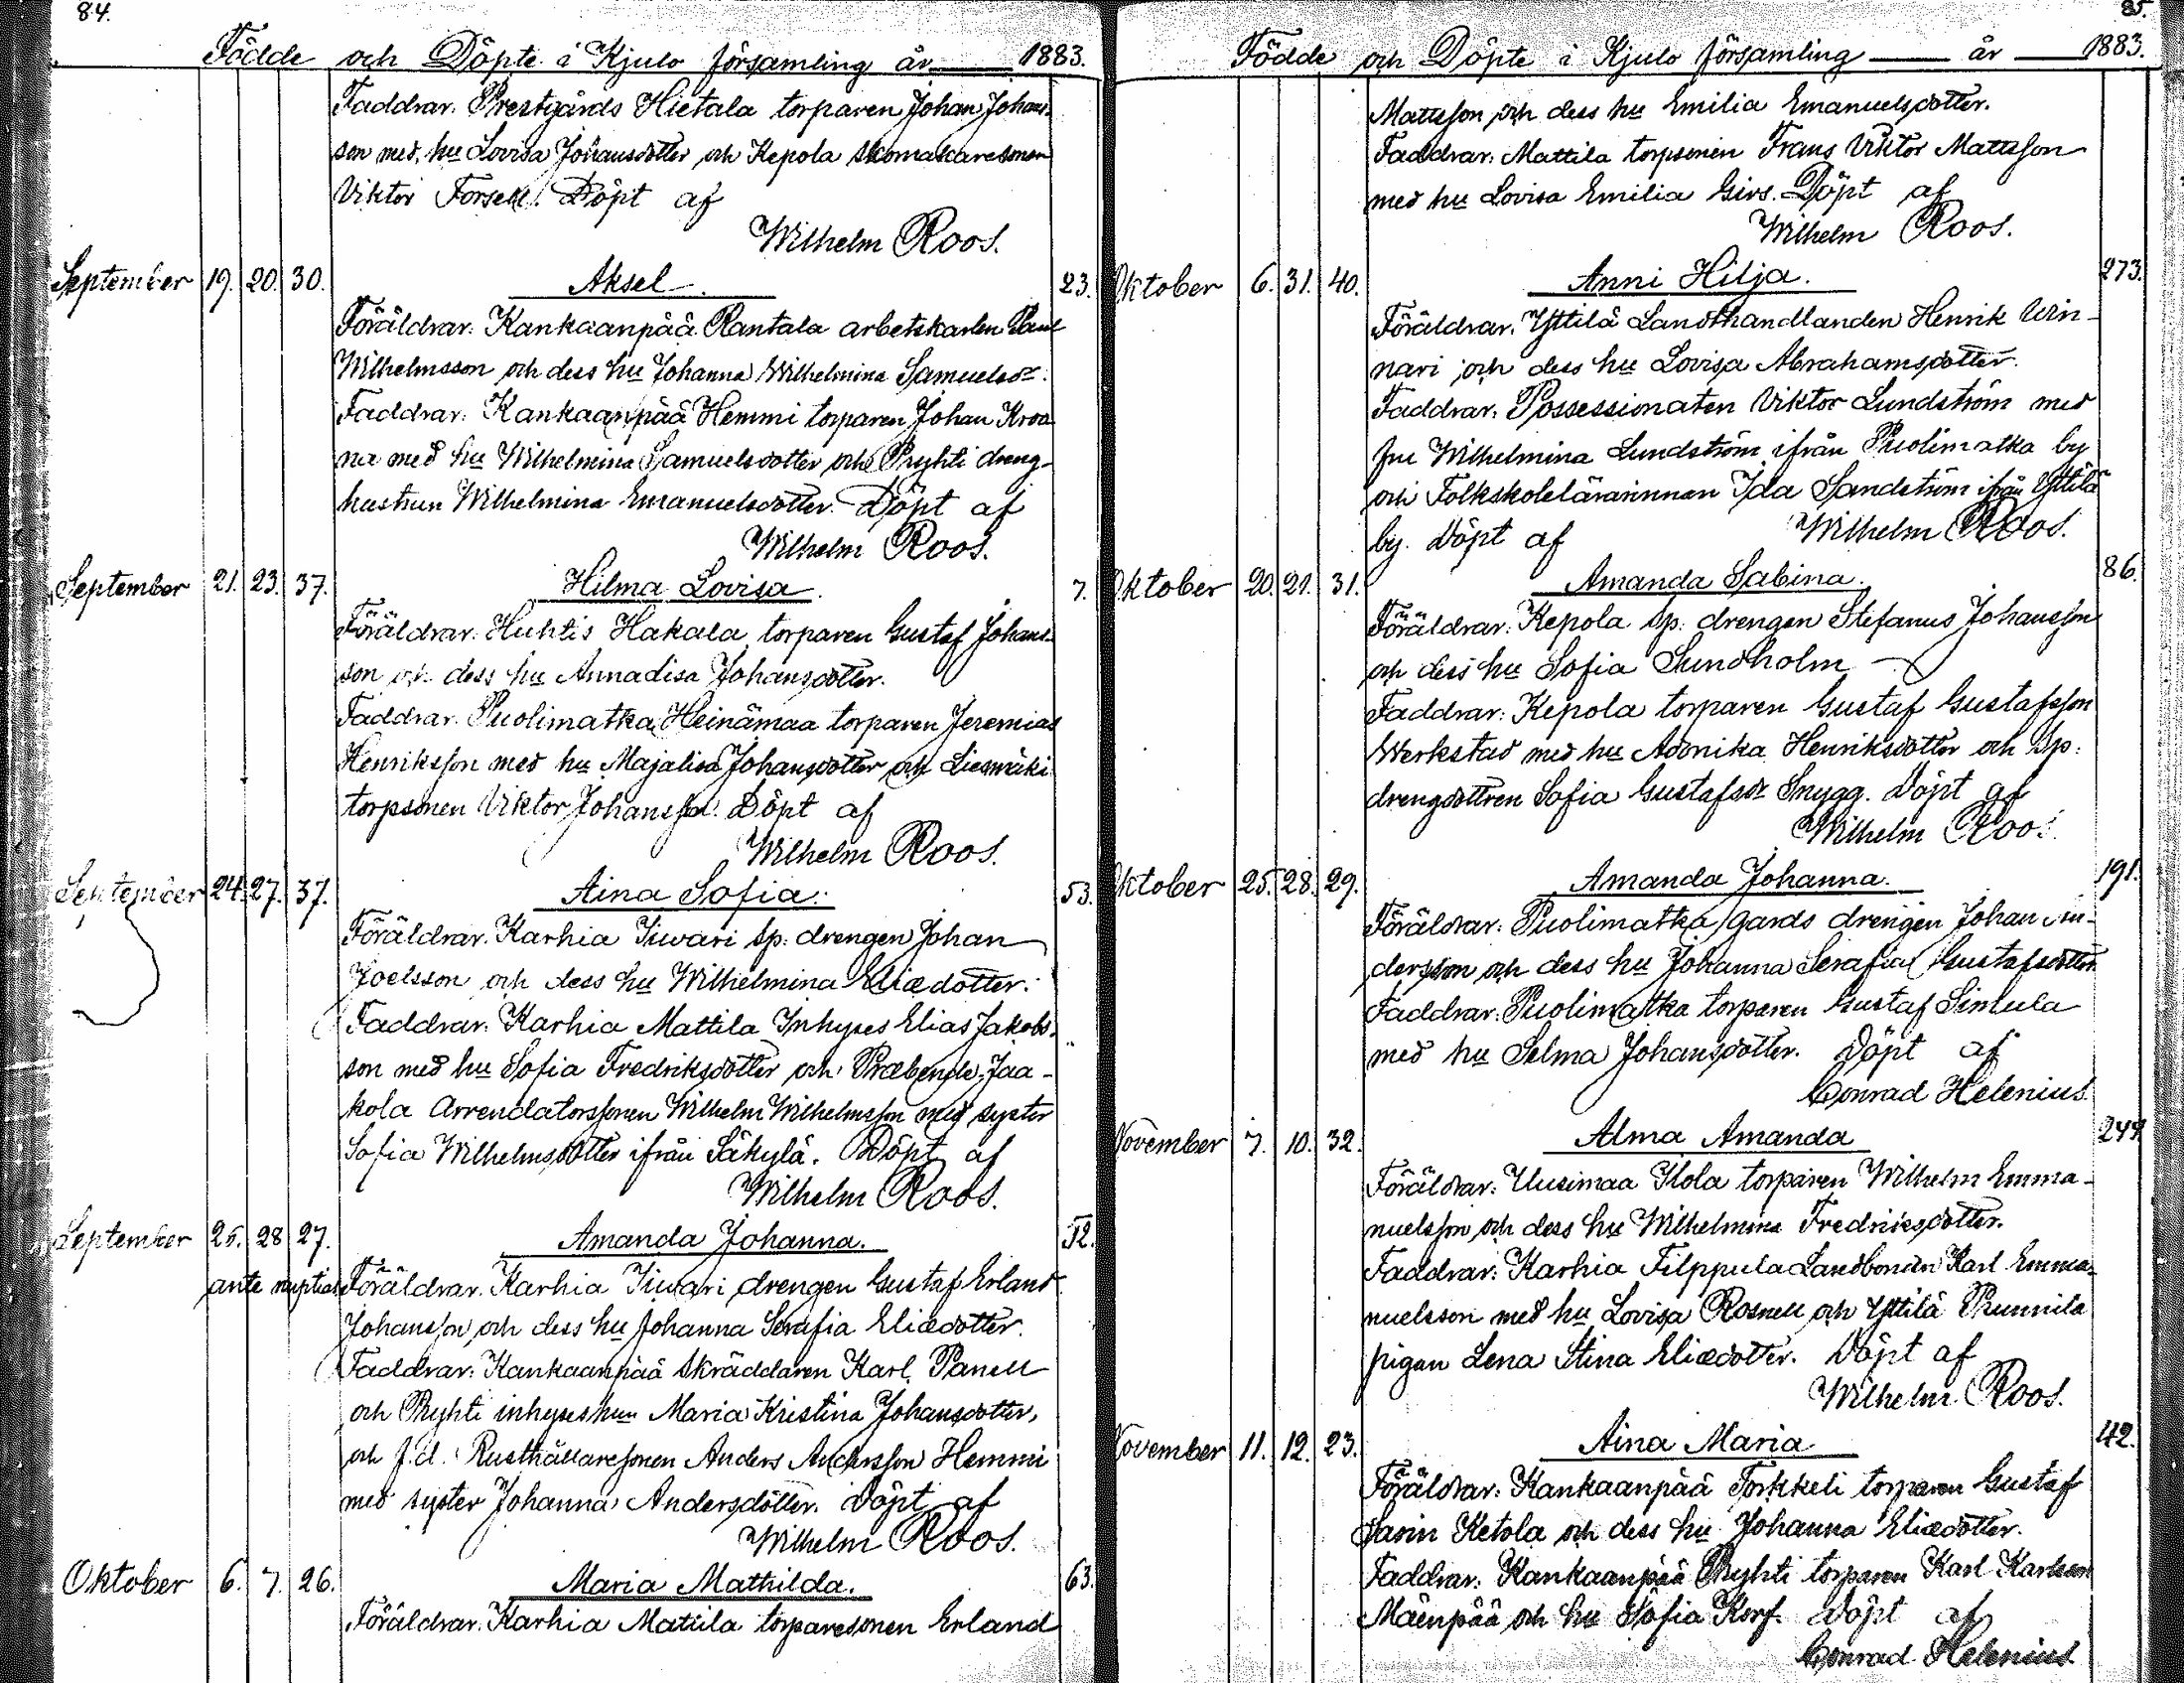 84.
Födde och Döpte i Kjulo församling år 1883.
Faddrar. Prestgårds Hietala torparen Johan Johans-
son med hu Lovisa Johansdotter och Kepola skomakaresonen
Viktor Forsell. Döpt af
Wilhelm Roos.
September 19. 20. 30. Aksel. 23.
Föräldrar: Kankaanpää Rantala arbetskarlen
Wilhelmsson och dess hu Johanna Wilhelmina Samuelsdr.
Faddrar: Kankaanpää Hemmi torparen Johan Kroo
na med hu Wilhelmina Samuelsdotter och Pryhti dreng-
hustrun Wilhelmina Emanuelsdotter. Döpt af
Wilhelm Roos.
September 21. 23. 37. Hilma Lovisa. 7.
Föräldrar: Huhtis Hakala torparen Gustaf Johans-
son och dess hu Annadisa Johansdotter.
Faddrar. Puolimatka Heinämaa torparen Jeremias
Henriksson med hu Majalisa Johansdotter och Liesmäki
torpsonen Viktor Johansson. Döpt af
Wilhelm Roos.
September 24. 27. 37. Aina Sofia. 53.
Föräldrar. Karhia Iiwari sp: drengen Johan
Joelsson och dess hu Wilhelmina Eliædotter.
Faddrar: Karhia Mattila Inhyses Elias Jakobs-
son med hu Sofia Fredriksdotter och Præbende Jaa-
kola Arrendatorssonen Wilhelm Wilhelmsson med syster
Sofia Wilhelmsdotter ifrån Säkylä. Döpt af
Wilhelm Roos.
September 25. 28 27. Amanda Johanna. 52.
ante nuptias Föräldrar. Karhia Iiwari drengen Gustaf Erland
Johansson och dess hu Johanna Serafia Eliædotter.
Faddrar: Kankaanpää skräddaren Karl Panell
och Pryhti inhyseshun Maria Kristina Johansdotter,
och f.d. Rusthållaresonen Anders Andersson Hemmi
med syster Johanna Andersdotter. Döpt af
Wilhelm Roos.
Oktober 6. 7. 26. Maria Mathilda. 63.
Föräldrar: Karhia Mattila torparesonen Erland
85.
Födde och Döpte i Kjulo församling år 1883.
Mattsson och dess hu Emilia Emanuelsdotter.
Faddrar: Mattila torpsonen Frans Viktor Mattsson
med hu Lovisa Emilia Girs. Döpt af
Wilhelm Roos.
Oktober 6. 31. 40. Anni Hilja. 273.
Föräldrar. Yttilä Landthandlanden Henrik Win-
nari och dess hu Lovisa Abrahamsdotter.
Faddrar: Possessionaten Viktor Lundström med
fru Wilhelmina Lundström ifrån Puolimatka by
och Folkskolelärarinnan Ida Sandström ifrån Yttilä
by. Döpt af Wilhelm Roos.
Oktober 20. 21. 31. Amanda Sabina. 86.
Föräldrar: Kepola sp: drengen Stefanus Johansson
och dess hu Sofia Sundholm
Faddrar: Kepola torparen Gustaf Gustafsson
Werkstad med hu Adonika Henriksdotter och sp:
drengdottren Sofia Gustafsdr Snygg. Döpt af
Wilhelm Roos.
Oktober 25. 28. 29. Amanda Johanna. 191.
Föräldrar: Puolimatka gårds drengen Johan An-
dersson och dess hu Johanna Serafia Gustafsdotter
Faddrar: Puolimatka torparen Gustaf Simula
med hu Selma Johansdotter. Döpt af
Conrad Helenius.
November 7. 10. 32. Alma Amanda 249
Föräldrar: Uusimaa Ilola torparen Wilhelm Emma-
nuelsson och dess hu Wilhelmina Fredriksdotter.
Faddrar: Karhia Filppula Landbonden Karl Emma-
nuelsson med hu Lovisa Rosnell och Yttilä Prunnila
pigan Lena Stina Eliædotter. Döpt af
Wilhelm Roos.
November 11. 12. 23. Aina Maria 42.
Föräldrar: Kankaanpää Torkkeli torparen Gustaf
Savin Ketola och dess hu Johanna Eliædotter.
Faddrar: Kankaanpää Pryhti torparen Karl Karlsson
Mäenpää och hu Sofia Korf. Döpt af
Conrad Helenius